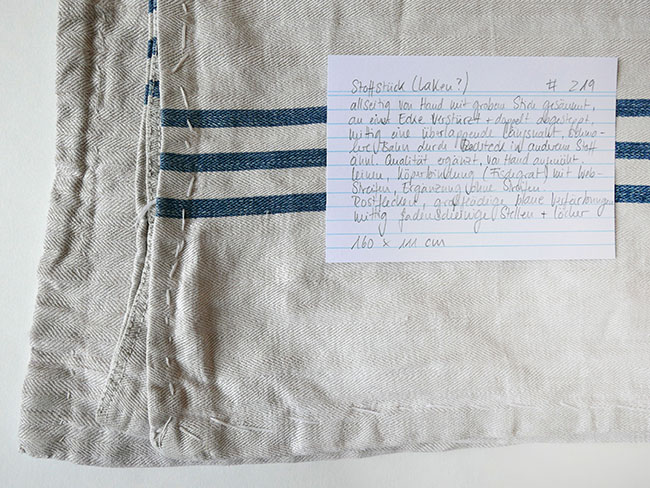 Stoffstück (Laken?) # 219
allseitig von Hand mit groben Stich gesäumt,
an einer Ecke verstürzt + doppelt abgesteppt,
mittig eine überlappende Längsnaht, schma-
lere Bahn durch Reststück in anderem Stoff
ähnl. Qualität ergänzt, von Hand angenäht,
Leinen, Köperbindung (Fischgrat) mit Web-
Streifen, Ergänzung ohne Streifen.
Rostflecken, großflächige blaue Verfärbungen
mittig fadenscheinige Stellen + Löcher
160 x 111 cm